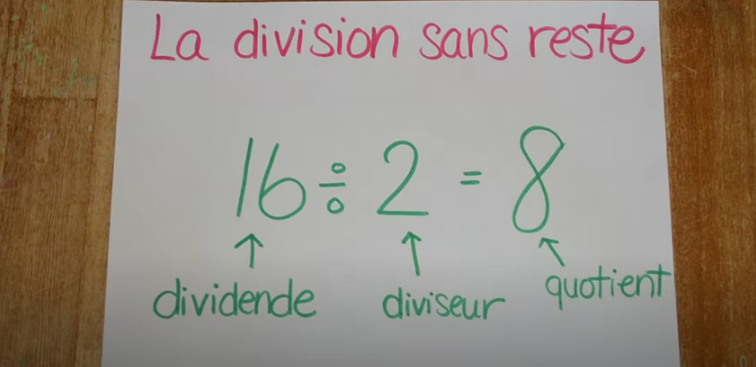 La division sans reste
16 ÷ 2 = 8
dividende diviseur quotient